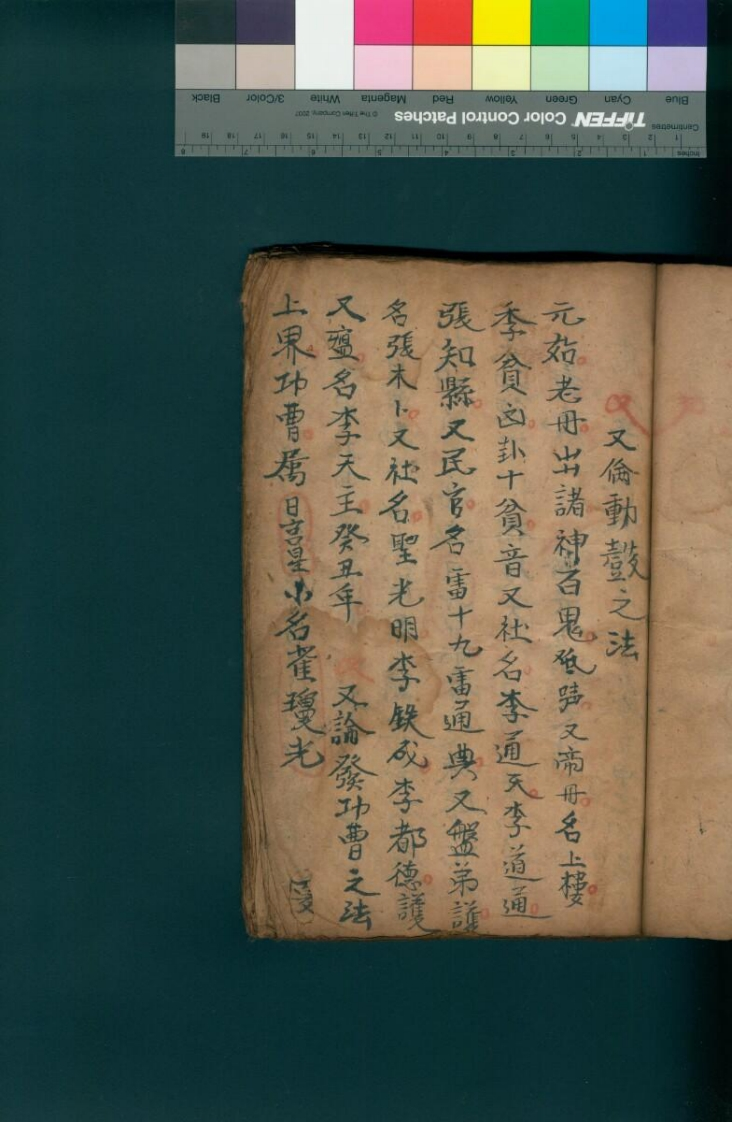 又倫動鼓之法
元始老毌出諸神百鬼 踭又帝毌名上樓
季貧 卦十貧音又社名李通天李道通
張知縣又民官名雷十九雷通典又盤弟護
名張木卜又社名聖光明李鉄成李都德護
又 名李天王癸丑年 又論發功曹之法
上界功曹属日言星小名崔瓊光
Inches
Centimetres
TIFFEN Color Control Patches
© The Tiffen Company, 2007
Blue Cyan Green Yellow Red Magenta White 3/Color Black